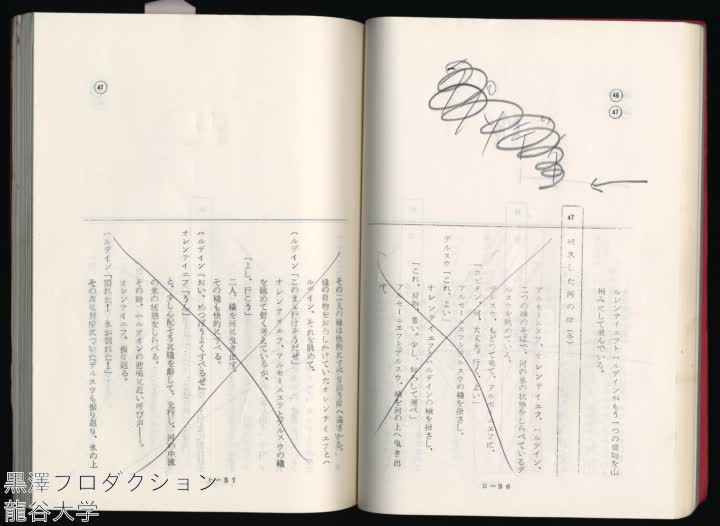 46
47
オレンテイエフとハルデインがもう一つの荷物を山
積みにして進んでいる。
47 結氷した河の岸(冬)
アルセーニエフ、オレンテイエフ、ハルデイン、
二つの橇のそばで、河の氷の状態をしらべているデ
ルスウを眺めている。
デルスウ、もどって来て、アルセーニエフに、
「カピタン、河、大丈夫。行く、よい」
アルセーニエフとデルスウの橇を指さし、
デルスウ「これ、よい」
オレンテイエフとハルデインの橇を指さし、
「これ、荷物、重い。少し、おろして運べ」
アルセーニエフとデルスウ、橇を河の上へ曳き出
す。
D—36
47
その二人の橇は快適にすべり向う岸へ遠ざかる。
ハルデイン、それを眺めて、
橇の荷物をおろしかけていたオレンテイエフとハ
ハルデイン「このまま行けそうだぜ」
オレンテイエフ、アルセーニエフとデルスウの橇
を眺めて暫く考えているが、
「よし、行こう」
二人、橇を河に曳き出す。
その橇も快適にすべる。
ハルデイン「おい、めっぽうよくすべるぜ」
オレンテイエフ「うん」
と、少し心配そうに橇を離して、先行し、河の中流
の氷の状態をしらべる。
その時、ハルデインの悲鳴に近い呼び声——。
オレンテイエフ、振り返る。
ハルデイン「割れた！ 氷が割れた！」
その声に対岸についたデルスウも振り返り、氷の上
D—37
黒澤プロダクション
龍谷大学